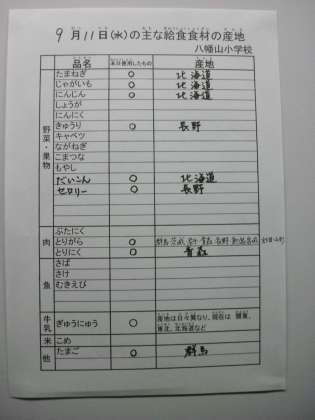 9月11日(水)の主な給食食材の産地
八幡山小学校
品名 本日使用したもの 産地
野菜・果物
たまねぎ ○ 北海道
じゃがいも ○ 北海道
にんじん ○ 北海道
しょうが
にんにく
きゅうり ○ 長野
キャベツ
ながねぎ
こまつな
もやし
だいこん ○ 北海道
セロリー ○ 長野
肉
ぶたにく
とりがら ○ 群馬 茨城 岩手 青森 長野
とりにく ○ 青森
魚
さば
さけ
むきえび
牛乳 ぎゅうにゅう ○ 産地は日々異なり、現在は 関東、
東北、北海道など
米 こめ
他 たまご ○ 群馬